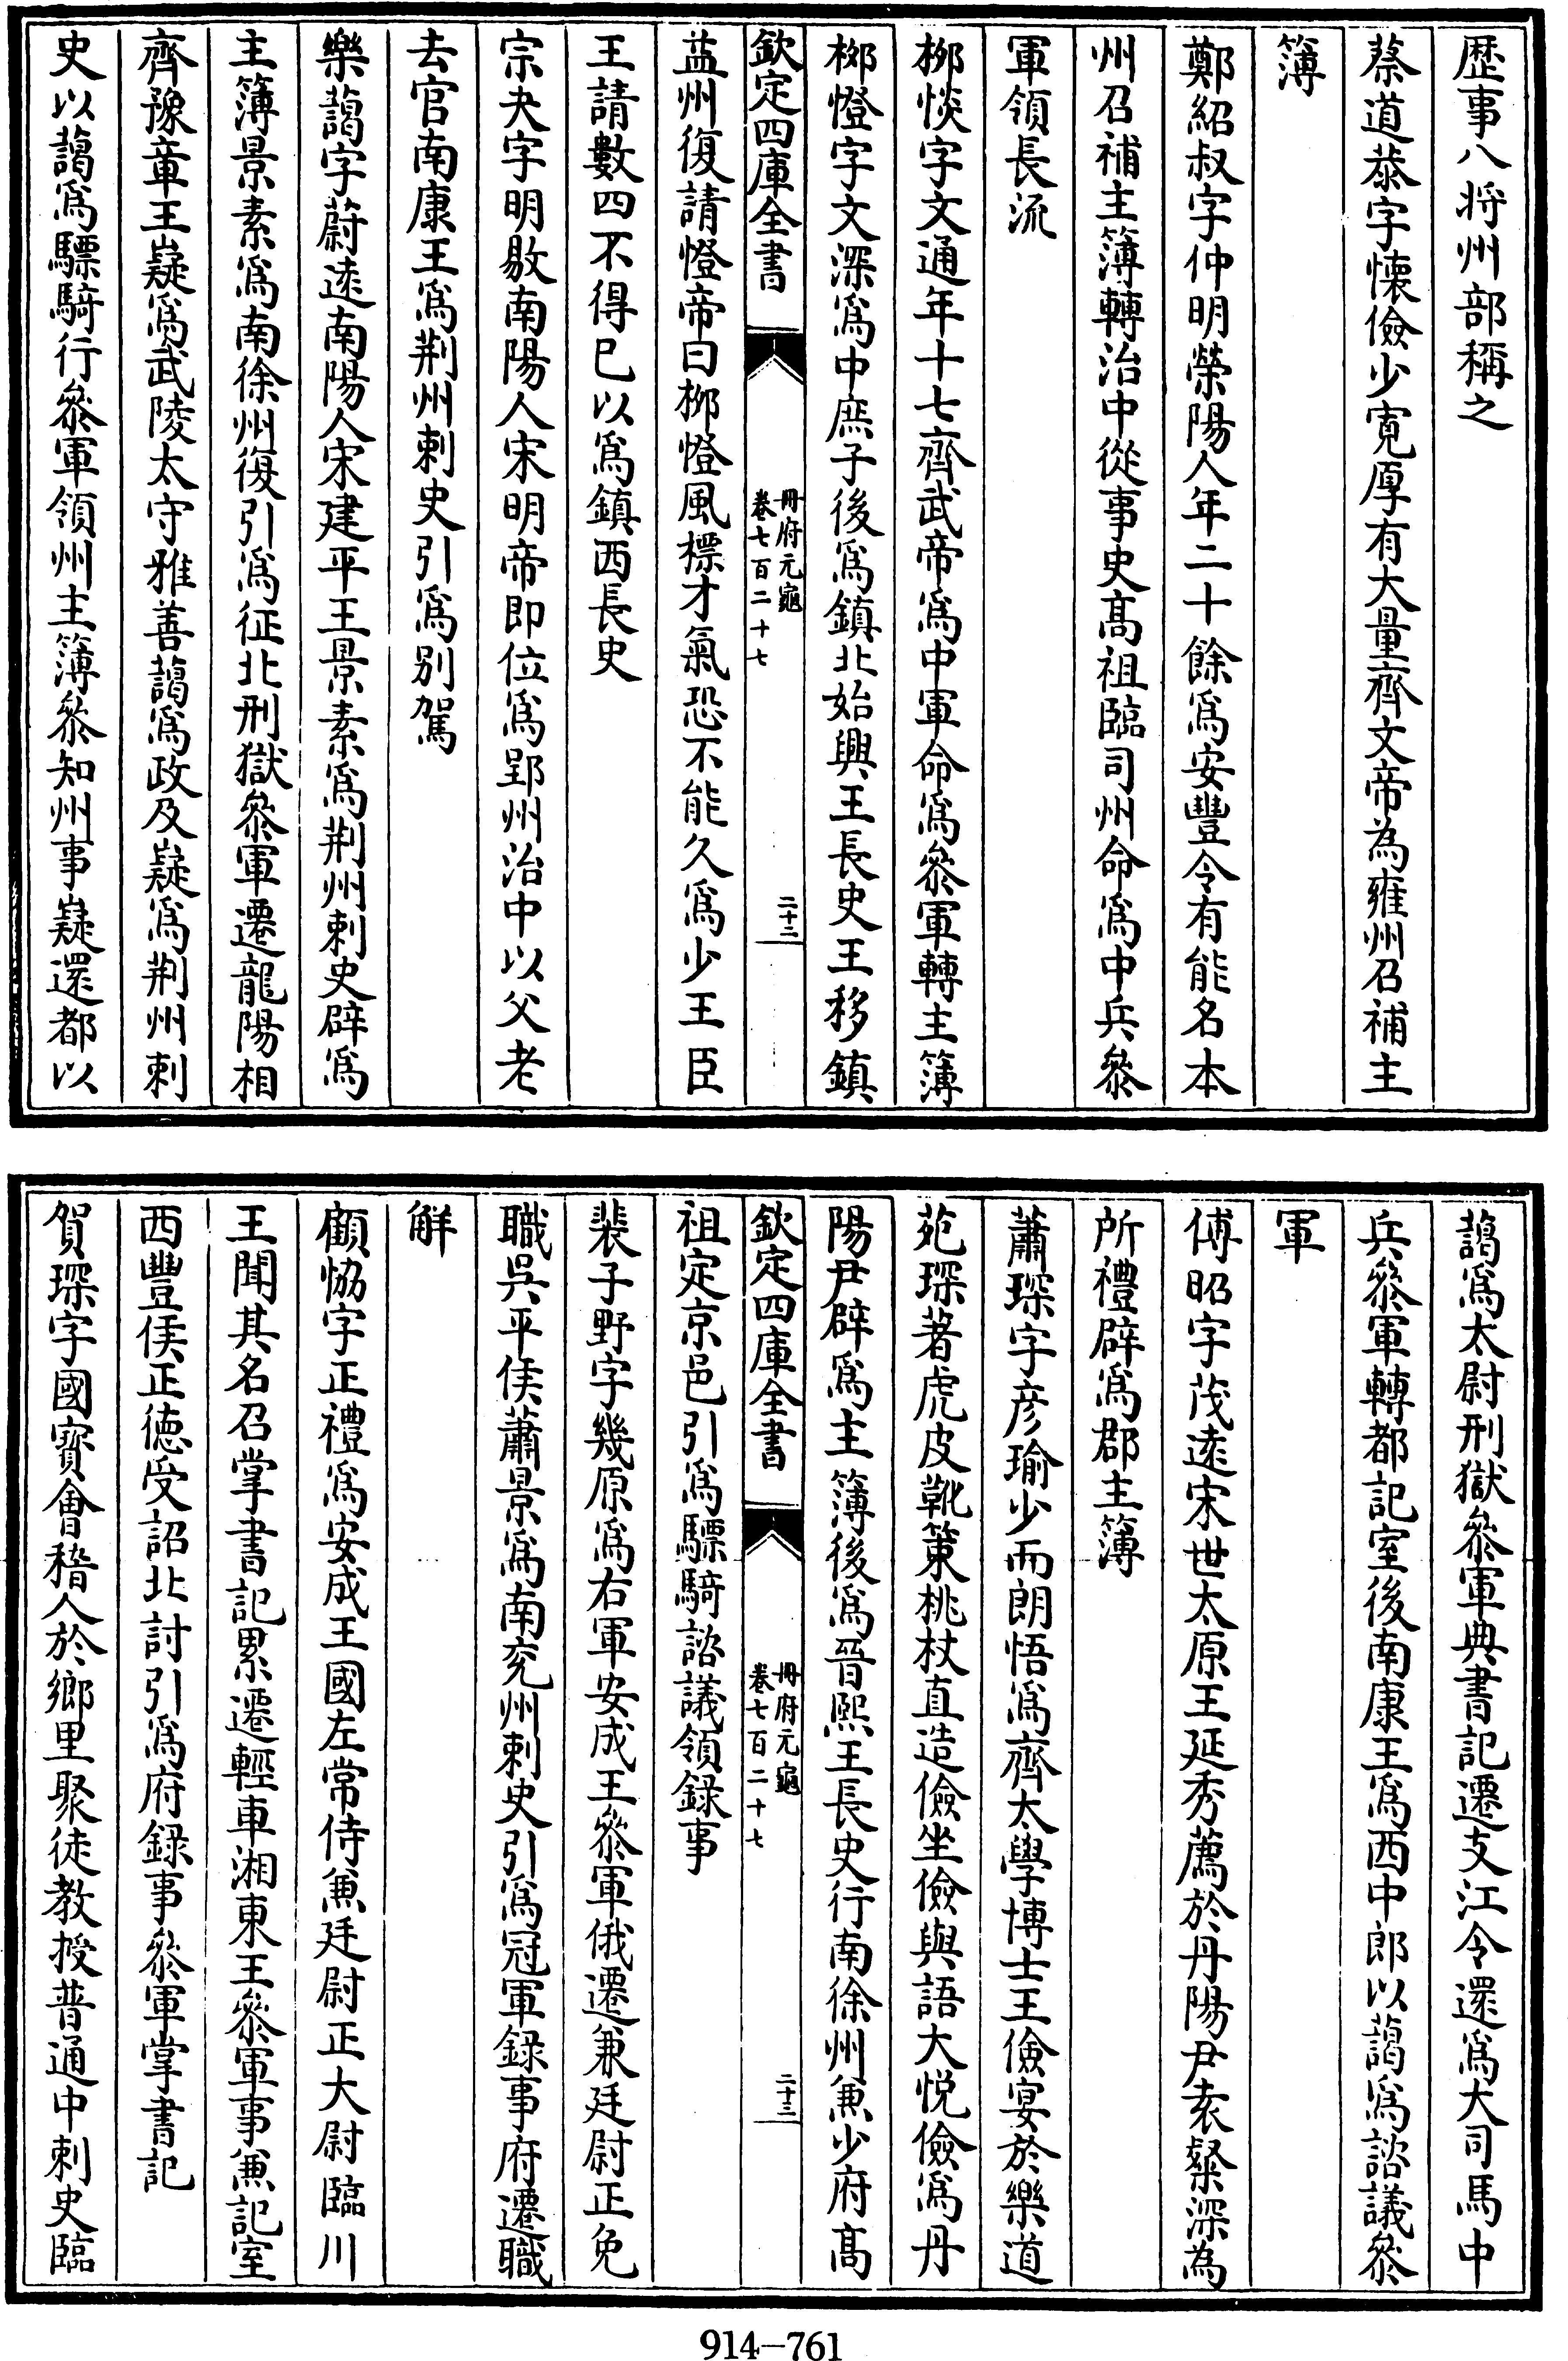 歴事八將州部稱之
蔡道恭字懷儉少寛厚有大量齊文帝為雍州召補主
簿
鄭紹叔字仲明滎陽人年二十餘爲安豐令有能名本
州召補主簿轉治中從事史髙祖臨司州命爲中兵參
軍領長流
栁惔字文通年十七齊武帝爲中軍命爲參軍轉主簿
栁憕字文深爲中庶子後爲鎮北始興王長史王移鎮
欽定四庫全書
冊府元龜
卷七百二十七
二十二
益州復請憕帝曰栁憕風標才氣恐不能久爲少王臣
王請數四不得已以爲鎮西長史
宗夬字明敭南陽人宋明帝即位爲郢州治中以父老
去官南康王爲荆州刺史引爲别駕
樂藹字蔚逺南陽人宋建平王景素爲荆州刺史辟爲
主簿景素爲南徐州復引爲征北刑獄參軍遷龍陽相
齊豫章王嶷爲武陵太守雅善藹爲政及嶷爲荆州刺
史以藹爲驃騎行參軍領州主簿參知州事嶷還都以
藹爲太尉刑獄參軍典書記遷支江令還爲大司馬中
兵參軍轉都記室後南康王爲西中郎以藹爲諮議參
軍
傅昭字茂逺宋世太原王延秀薦於丹陽尹袁粲深為
所禮辟爲郡主簿
蕭琛字彦瑜少而朗悟爲齊太學博士王儉宴於樂遊
苑琛著虎皮靴策桃杖直造儉坐儉與語大悦儉爲丹
陽尹辟爲主簿後爲晉熙王長史行南徐州兼少府髙
欽定四庫全書
冊府元龜
卷七百二十七
二十三
祖定京邑引爲驃騎諮議領録事
裴子野字幾原爲右軍安成王參軍俄遷兼廷尉正免
職呉平侯蕭景爲南兖州刺史引爲冠軍録事府遷職
解
顧協字正禮爲安成王國左常侍兼廷尉正大尉臨川
王聞其名召掌書記累遷輕車湘東王參軍事兼記室
西豐侯正徳受詔北討引爲府録事參軍掌書記
賀琛字國寳㑹稽人於鄉里聚徒教授普通中刺史臨
914-761